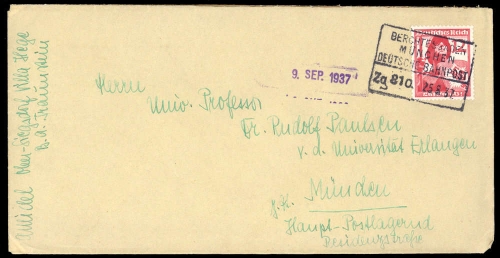 Deutsches Reich
BERCHTESGADEN
MÜNCHEN
DEUTSCHE BAHNPOST
Zg 810
25.8.37
9. SEP. 1937
Herrn
Univ. Professor
Dr. Rudolf Paulsen
v. d. Universität Erlangen
z. Zt. München
Haupt-Postlagernd
Residenzstraße
Ober-Siegsdorf Villa Hege
b. a. Traunstein